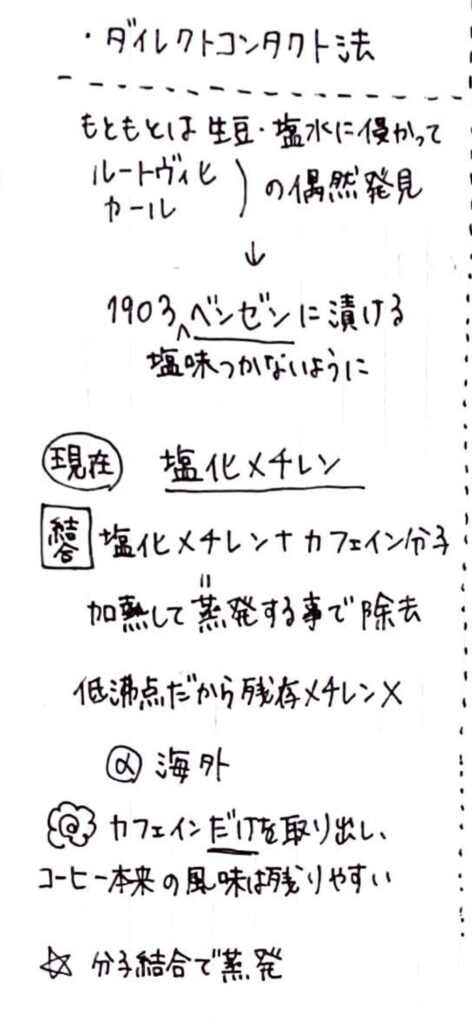 ・ダイレクトコンタクト法
もともとは生豆・塩水に侵かって
ルートヴィヒ
カール
)の偶然発見
↓
1903 ^ベンゼンに漬ける
塩味つかないように
現在 塩化メチレン
結合 塩化メチレン+カフェイン分子
=
加熱して蒸発する事で除去
低沸点だから残存メチレン×
α 海外
@ カフェインだけを取り出し、
コーヒー本来の風味は残りやすい
☆ 分子結合で蒸発